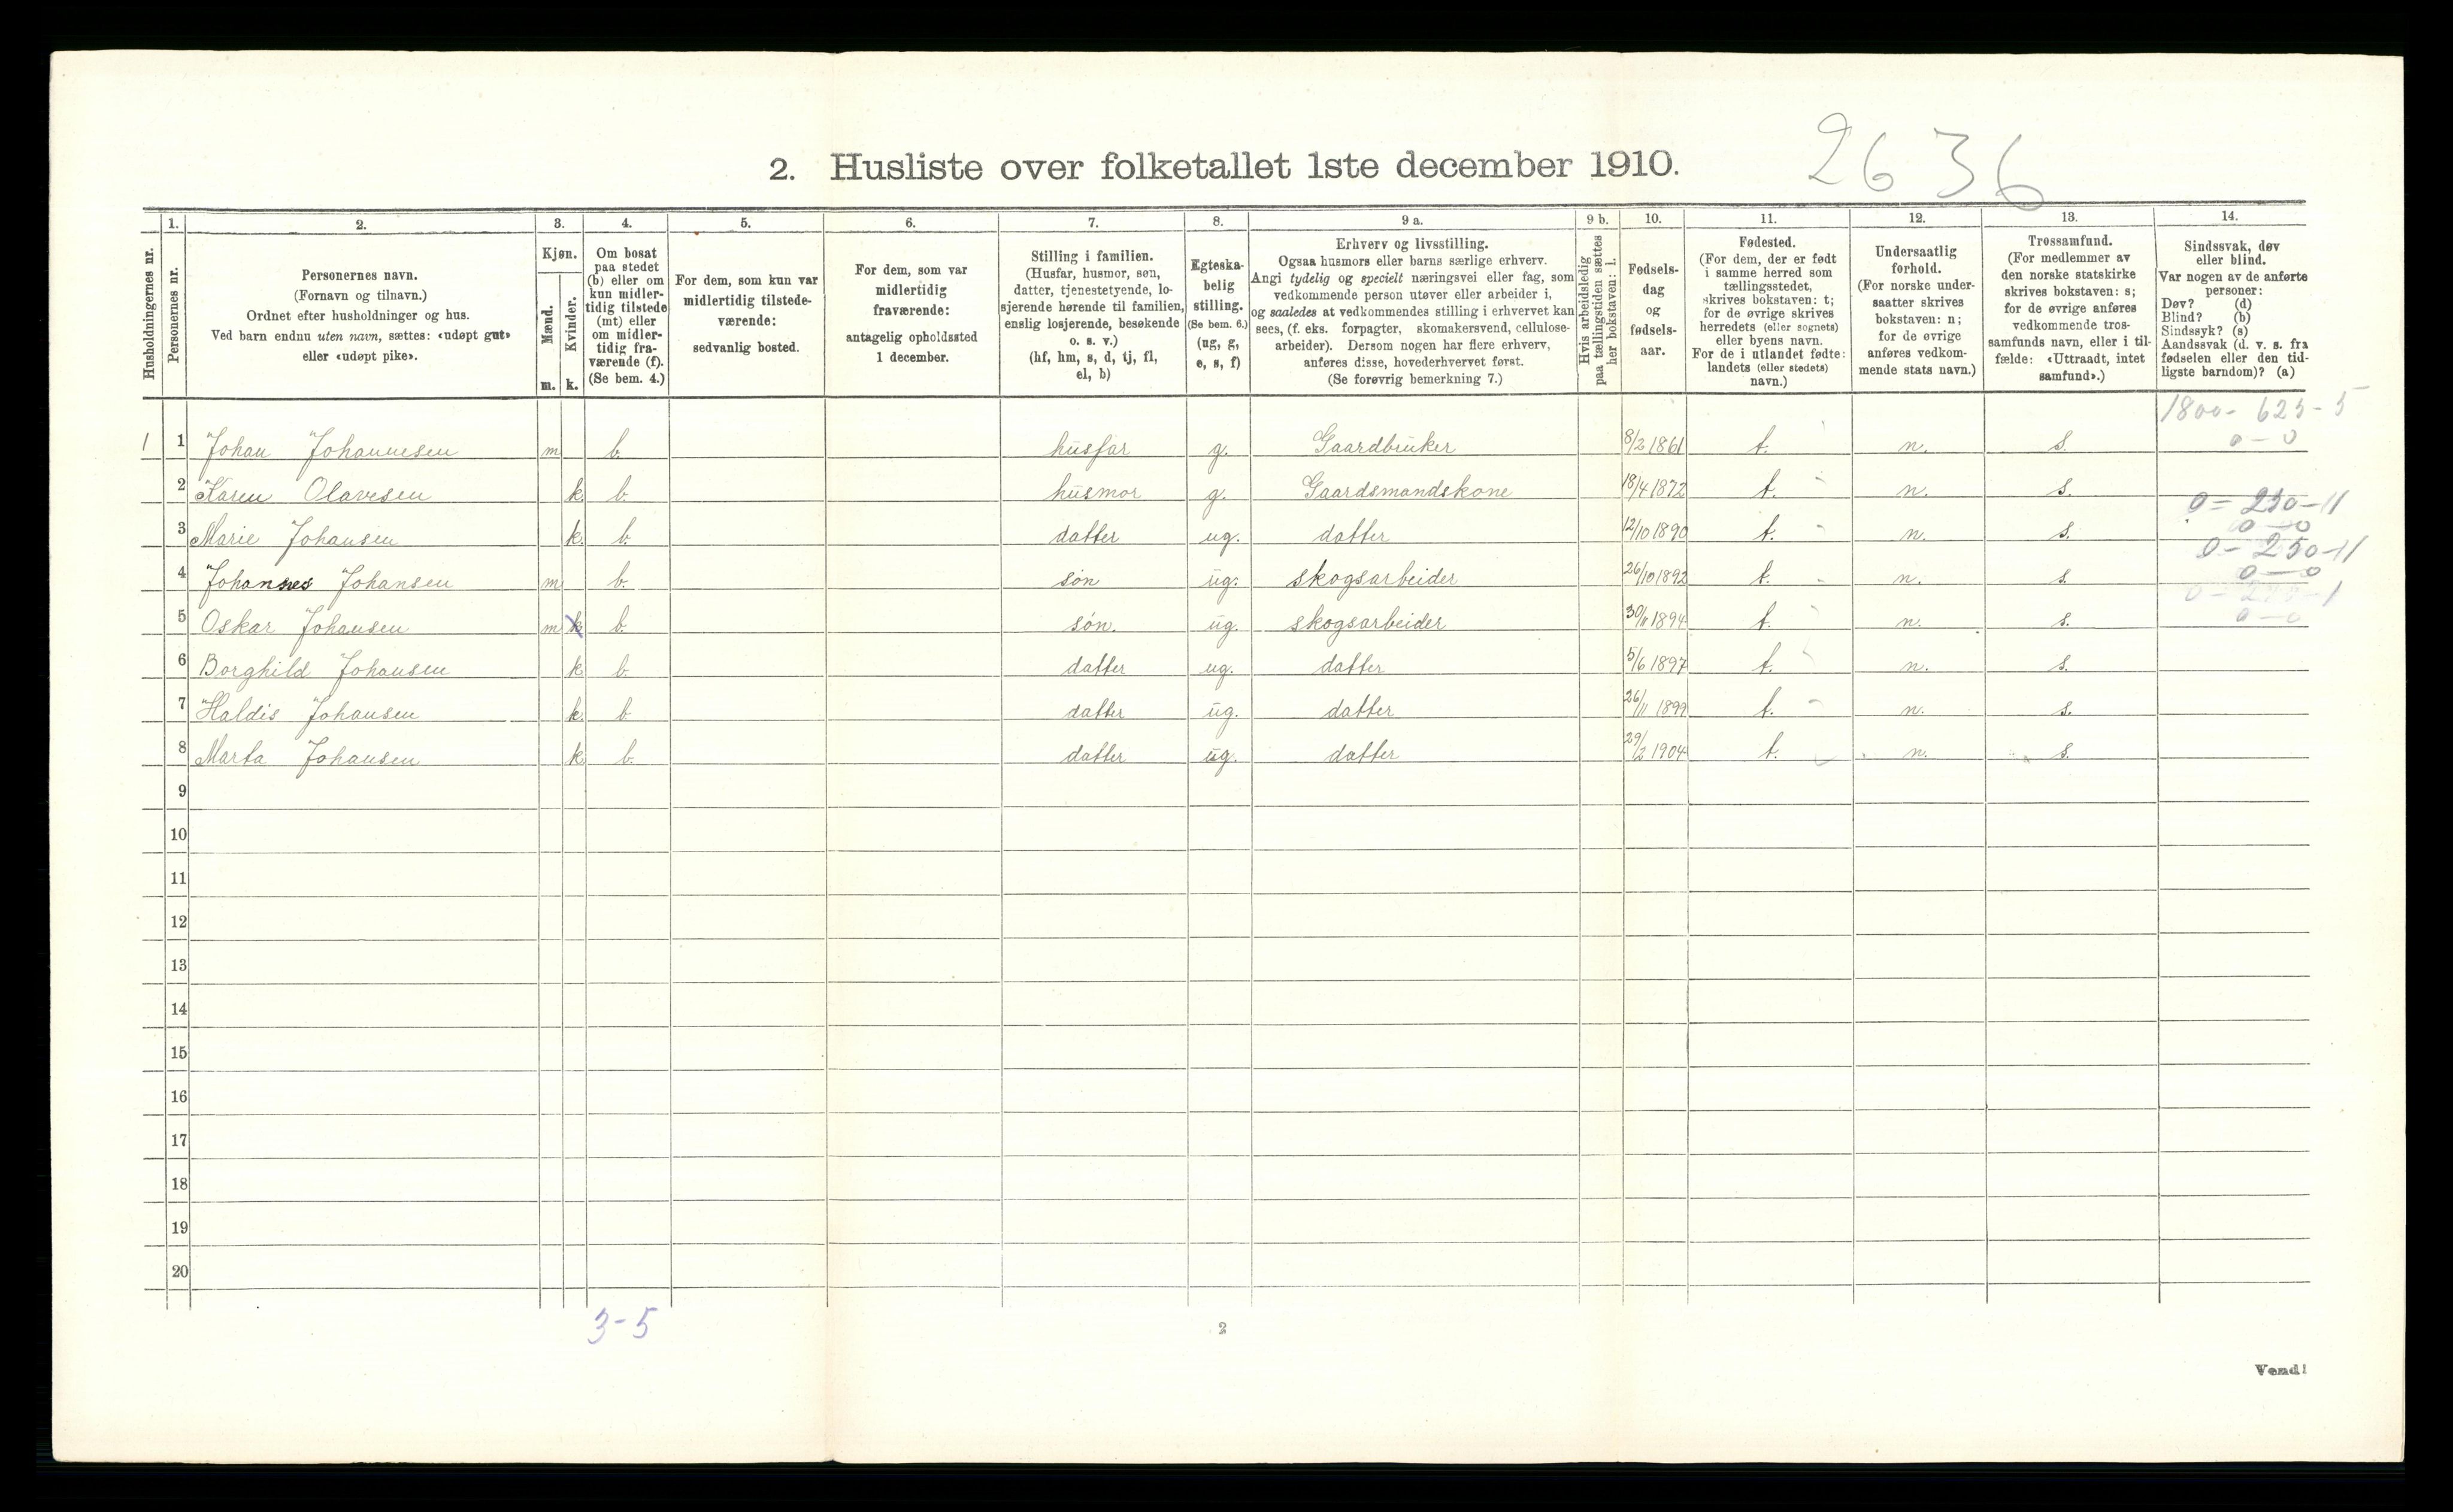 2636
2. Husliste over folketallet 1ste december 1910.
Husholdningernes nr.
1.
Personernes nr.
2.
Personernes navn.
(Fornavn og tilnavn.)
Ordnet efter husholdninger og hus.
Ved barn endnu uten navn, sættes: «udøpt gut»
eller «udøpt pike».
3.
Kjøn.
Mænd.
m.
Kvinder.
k.
4.
Om bosat
paa stedet
(b) eller om
kun midler-
tidig tilstede
(mt) eller
om midler-
tidig fra-
værende (f).
(Se bem. 4.)
5.
For dem, som kun var
midlertidig tilstede-
værende:
sedvanlig bosted.
6.
For dem, som var
midlertidig
fraværende:
antagelig opholdssted
1 december.
7.
Stilling i familien.
(Husfar, husmor, søn,
datter, tjenestetyende, lo-
sjerende hørende til familien,
enslig losjerende, besøkende
o. s. v.)
(hf, hm, s, d, tj, fl,
el, b)
8.
Egteska-
belig
stilling.
(Se bem. 6.)
(ug, g,
e, s, f)
9 a.
Erhverv og livsstilling.
Ogsaa husmors eller barns særlige erhverv.
Angi tydelig og specielt næringsvei eller fag, som
vedkommende person utøver eller arbeider i,
og saaledes at vedkommendes stilling i erhvervet kan
sees, (f. eks. forpagter, skomakersvend, cellulose-
arbeider). Dersom nogen har flere erhverv,
anføres disse, hovederhvervet først.
(Se forøvrig bemerkning 7.)
9 b.
Hvis arbeidsledig
paa tællingstiden sættes
her bokstaven: l.
10.
Fødsels-
dag
og
fødsels-
aar.
11.
Fødested.
(For dem, der er født
i samme herred som
tællingsstedet,
skrives bokstaven: t;
for de øvrige skrives
herredets (eller sognets)
eller byens navn.
For de i utlandet fødte:
landets (eller stedets)
navn.)
12.
Undersaatlig
forhold.
(For norske under-
saatter skrives
bokstaven: n;
for de øvrige
anføres vedkom-
mende stats navn.)
13.
Trossamfund.
(For medlemmer av
den norske statskirke
skrives bokstaven: s;
for de øvrige anføres
vedkommende tros-
samfunds navn, eller i til-
fælde: «Uttraadt, intet
samfund».)
14.
Sindssvak, døv
eller blind.
Var nogen av de anførte
personer:
Døv? (d)
Blind? (b)
Sindssyk? (s)
Aandssvak (d. v. s. fra
fødselen eller den tid-
ligste barndom)? (a)
1800- 625-5
1 1 Johan Johannesen m b. husfar g. Gaardbruker 8/2 1861 t. n. s. 0-0
2 Karen Olavesen k b. husmor g. Gaardsmandskone 18/4 1872 t. n. s.
0-250-11
3 Marie Johansen k. b. datter ug. datter 12/10 1890 t. n. s. 0-0
0-250-11
4 Johannes Johansen m b. søn ug. skogsarbeider 26/10 1892 t. n. s. 0-0
5 Oskar Johansen m k b. søn. ug. skogsarbeider 30/11 1894 t. n. s. 0-0
6 Borghild Johansen k b. datter ug. datter 5/6 1897 t. n. s.
7 Haldis Johansen k. b. datter ug. datter 26/11 1899 t. n. s.
8 Marta Johansen k b. datter ug. datter 29/2 1904 t. n. s.
9
10
11
12
13
14
15
16
17
18
19
20
3-5
2
Vend!